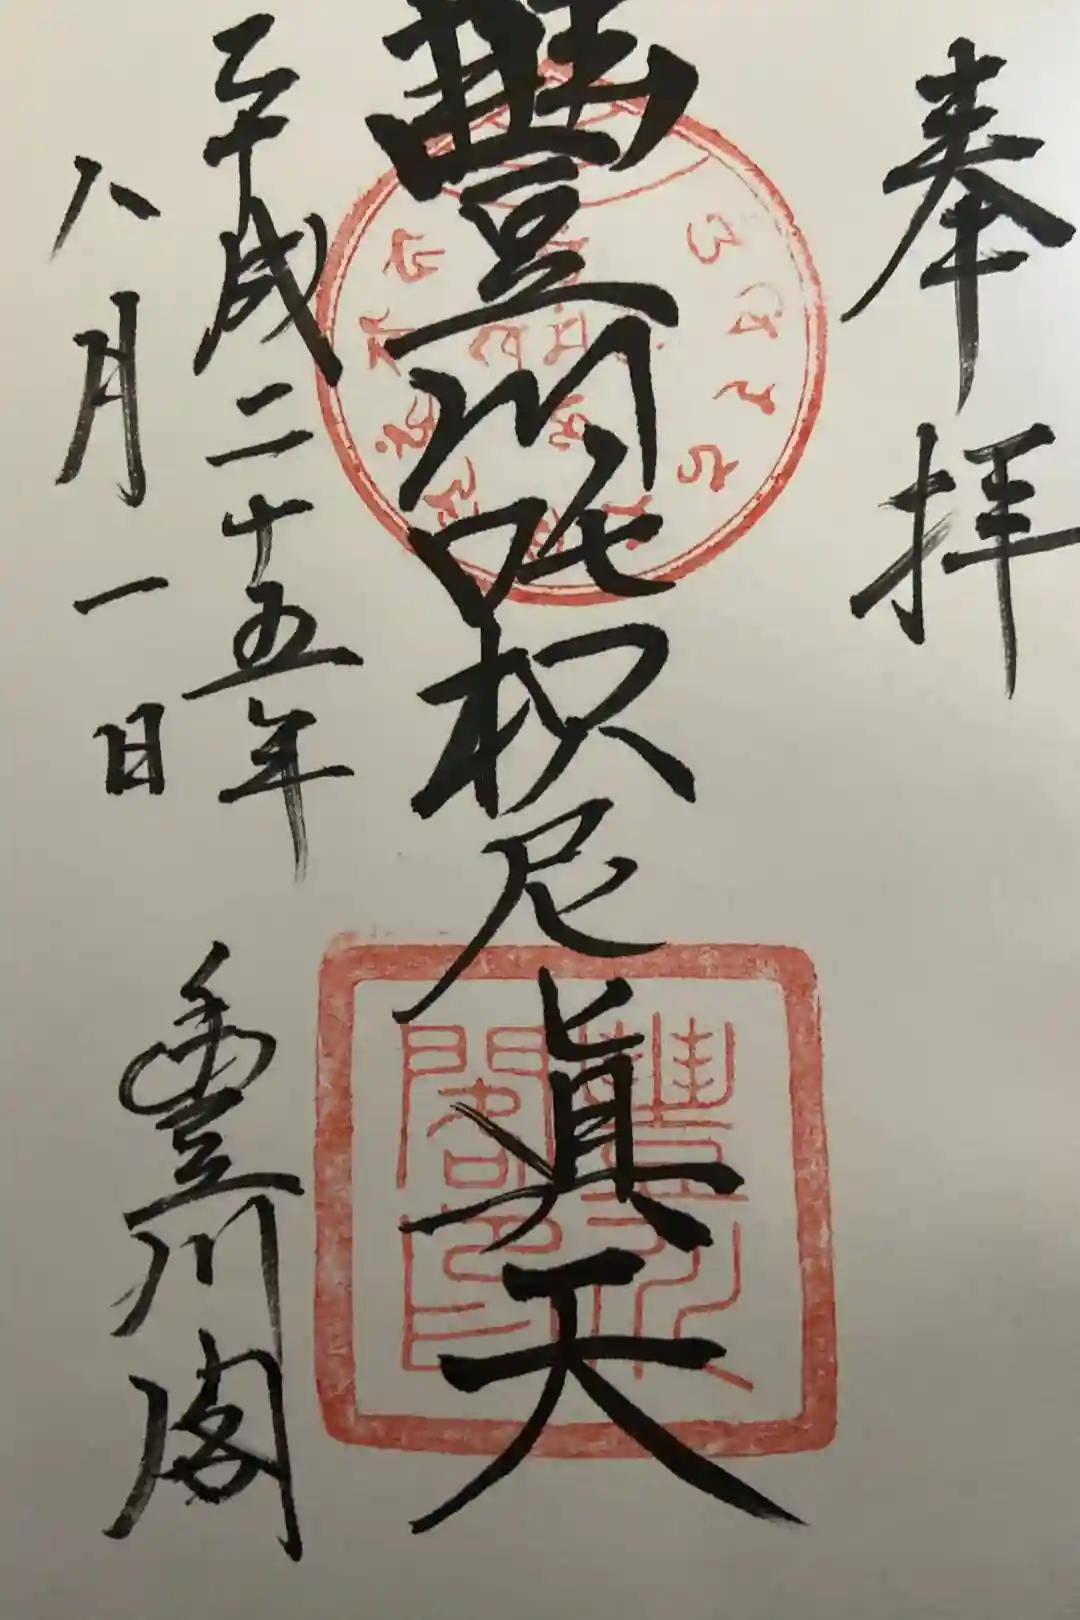 奉拝
豐川吒枳尼眞天
平成二十五年
八月一日
豐川閣
豐川閣印